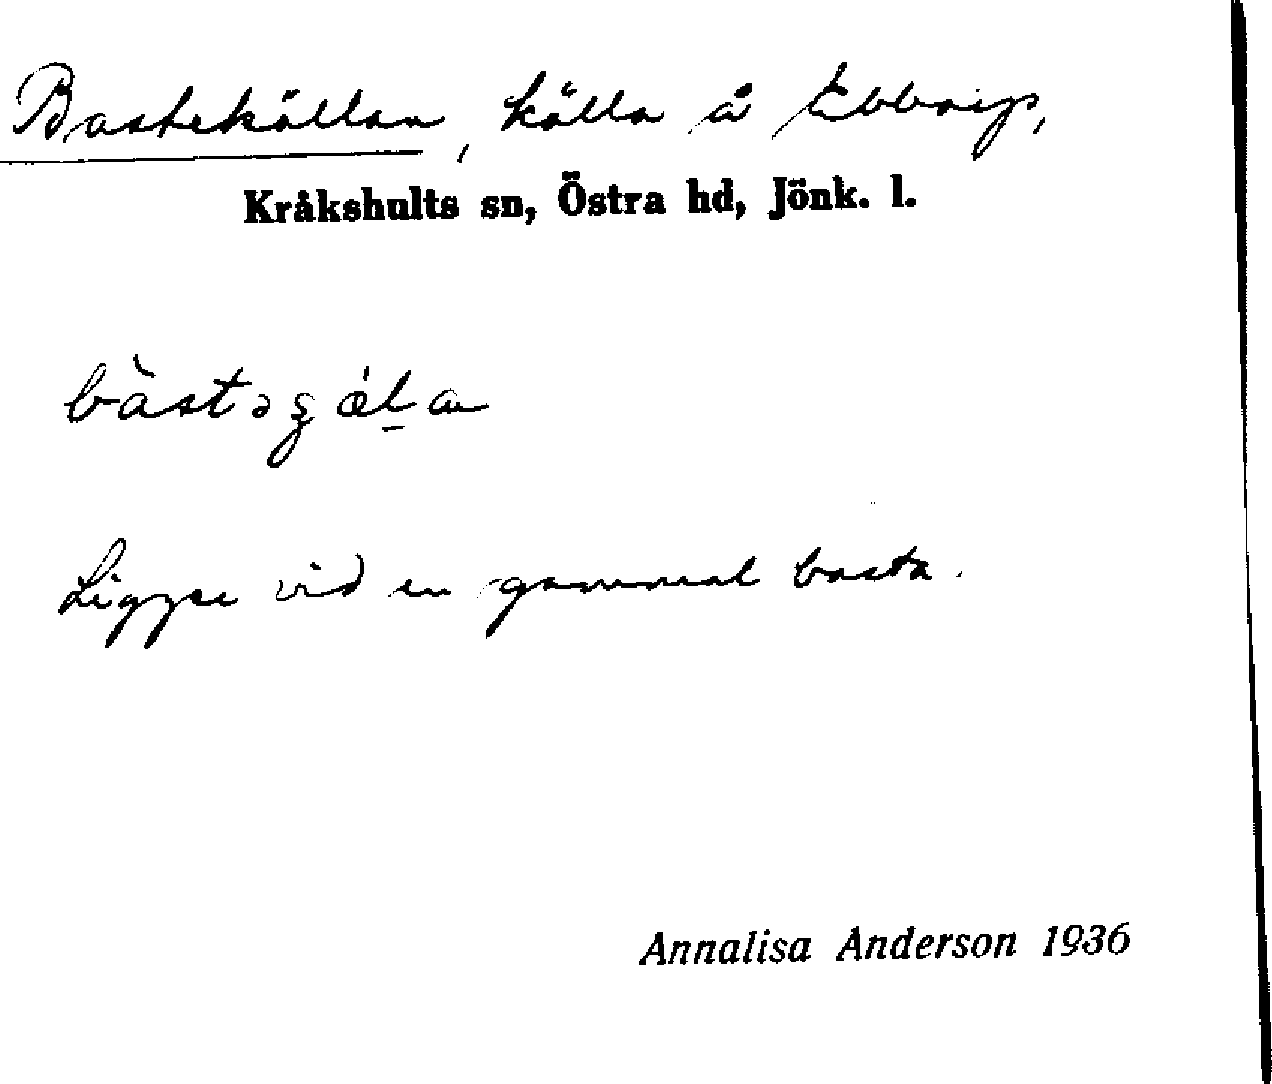 Bastekällan, källa å Ebbarp,
Kråkshults sn, Östra hd, Jönk. l.
Ligger vid en gammal basta.
Annalisa Anderson 1936